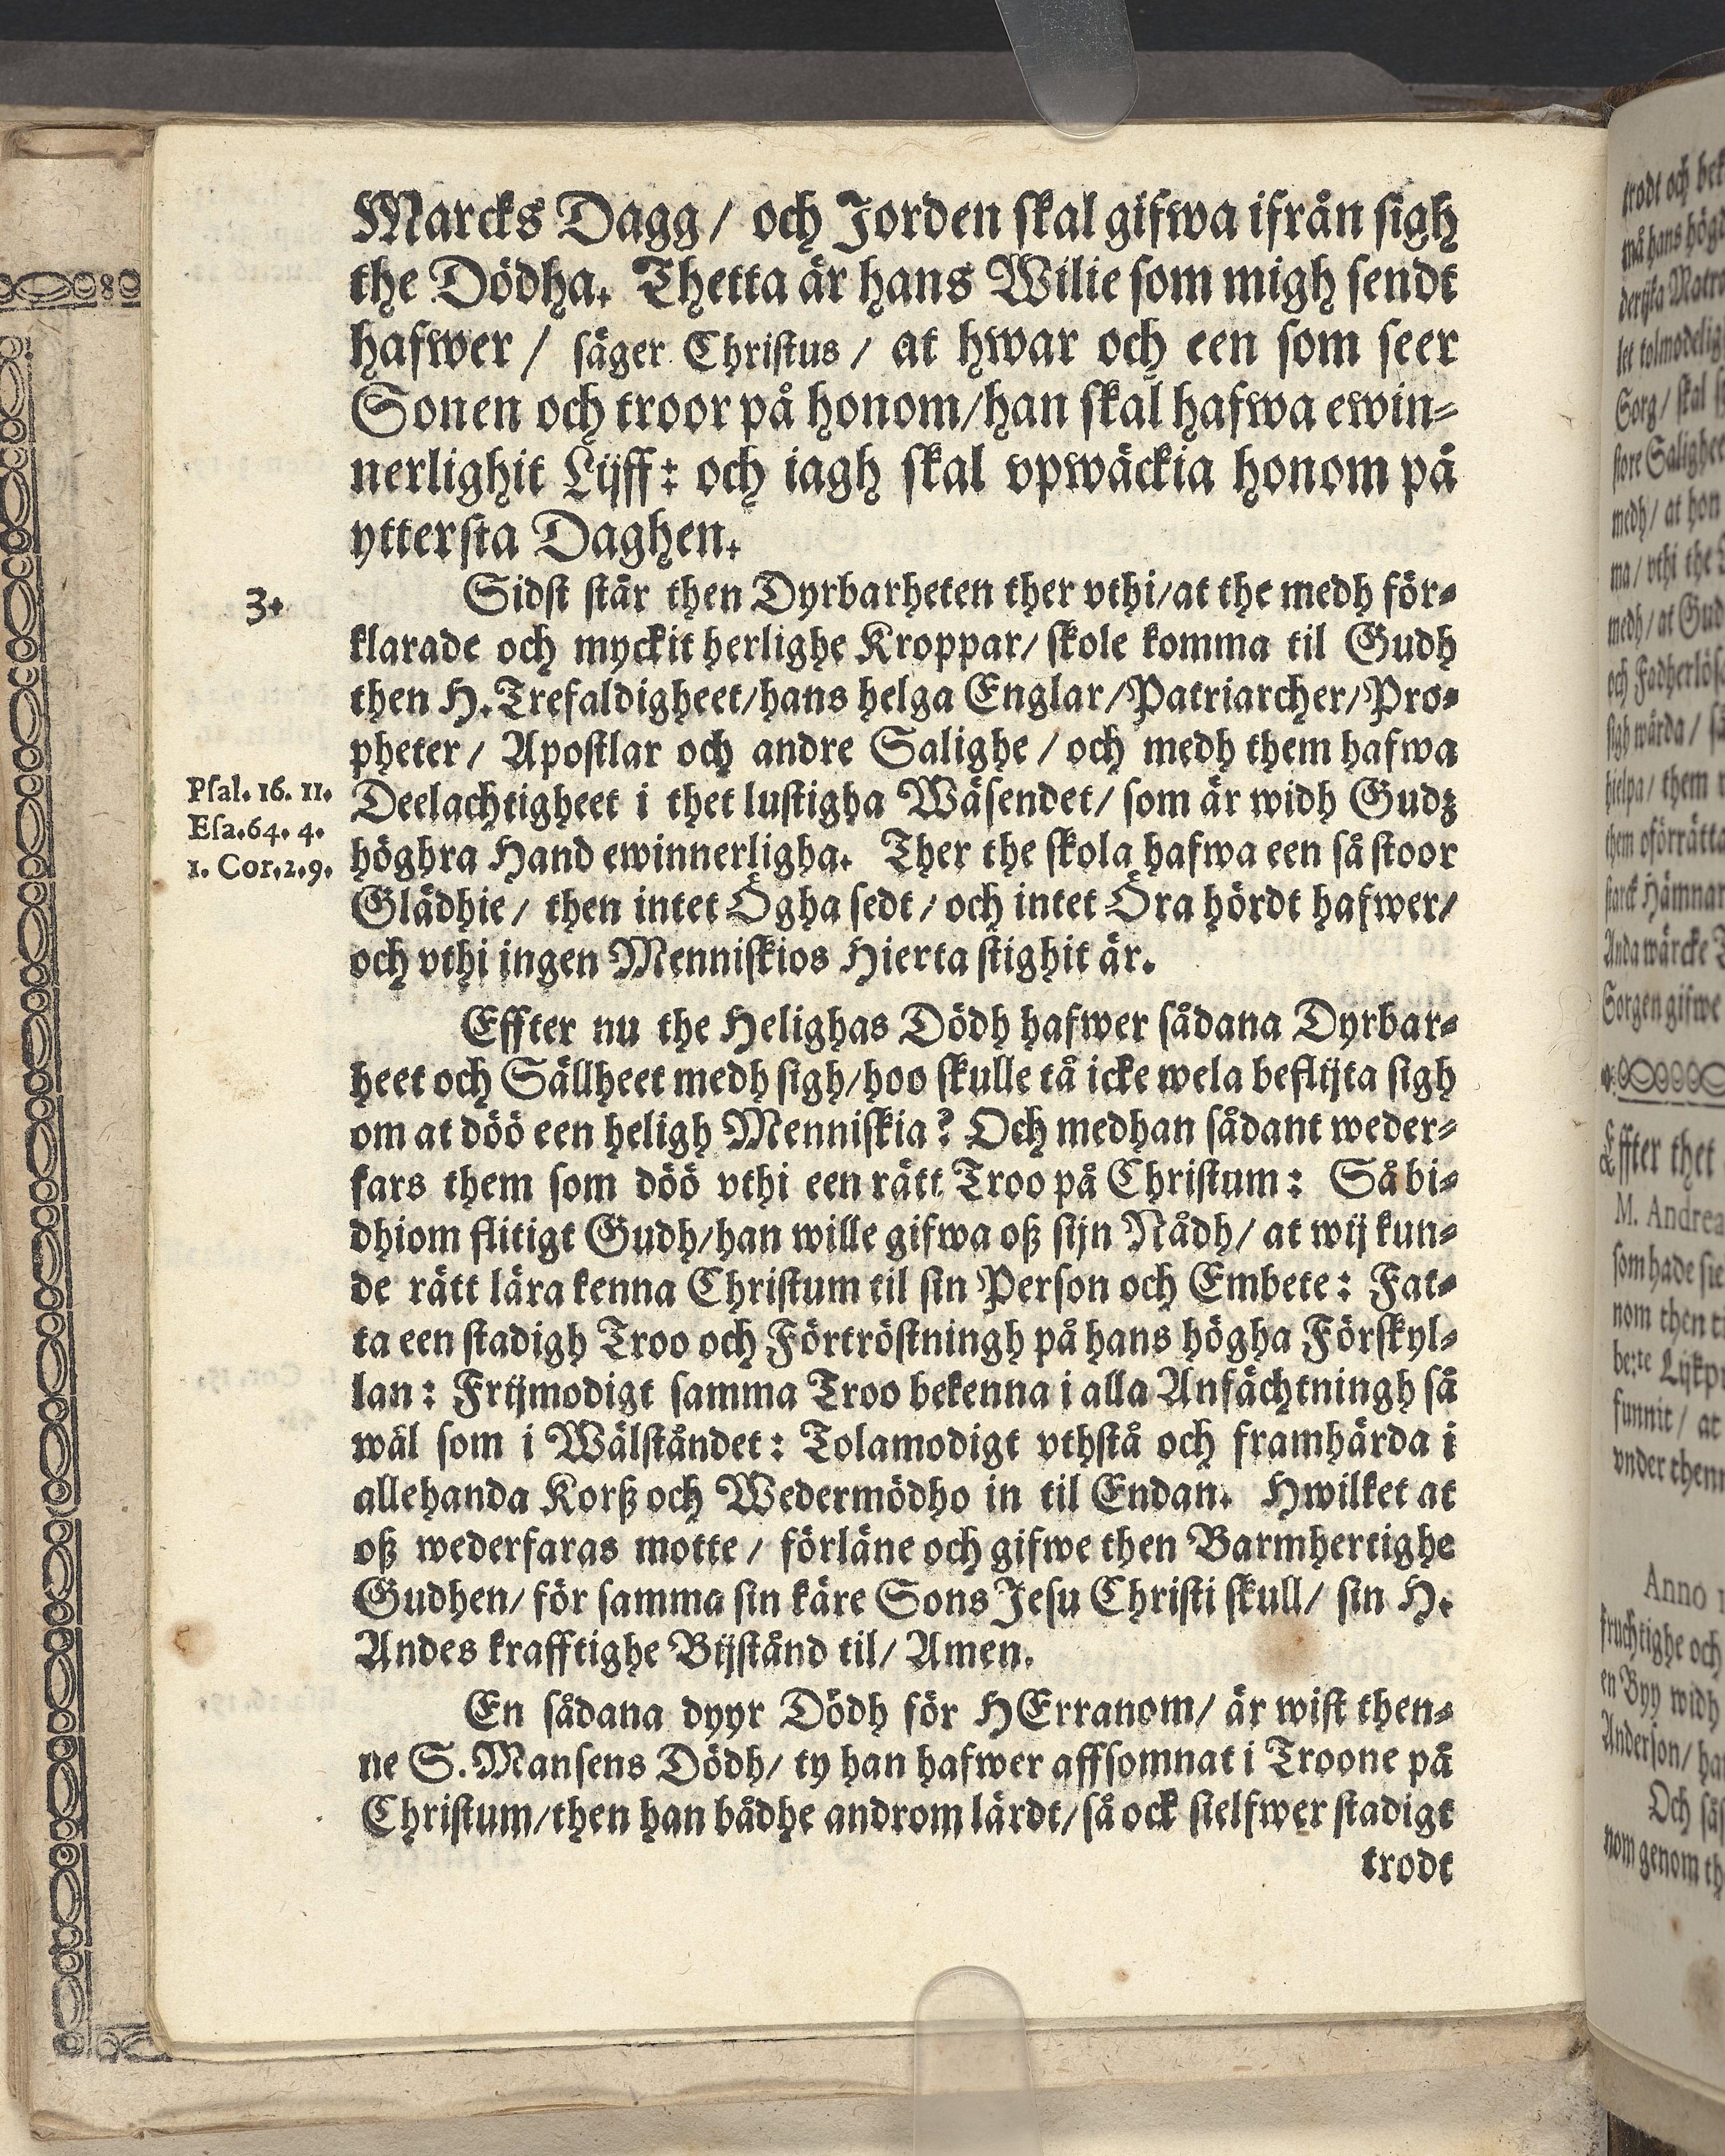 Marcks Dagg / och Jorden skal gifwa ifrån sigh
the Dödha. Thetta är hans Wilie som migh sendt
hafwer / säger Christus / at hwar och een som seer
Sonen och troor på honom/han skal hafwa ewin-
nerlighit Lijff: och iagh skal vpwäckia honom på
yttersta Daghen.
3.
Sidst står then Dyrbarheten ther vthi/at the medh för-
klarade och myckit herlighe Kroppar/ skole komma til Gudh
then H. Trefaldigheet/hans helga Englar/Patriarcher/Pro-
pheter/ Apostlar och andre Salighe / och medh them hafwa
Psal. 16. 11.
Deelachtigheet i thet lustigha Wäsendet/ som är widh Gudz
Esa. 64. 4.
höghra Hand ewinnerligha. Ther the skola hafwa een så stoor
1. Cor. 2. 9.
Glädhie/ then intet Ögha sedt / och intet Öra hördt hafwer/
och vthi ingen Menniskios Hierta stighit är.
Effter nu the Helighas Dödh hafwer sådana Dyrbar-
heet och Sällheet medh sigh/hoo skulle tå icke wela beflijta sigh
om at döö een heligh Menniskia? Och medhan sådant weder-
fars them som döö vthi een rätt Troo på Christum: Så bi-
dhiom flitigt Gudh/han wille gifwa oß sijn Nådh/ at wij kun-
de rätt lära kenna Christum til sin Person och Embete: Fat-
ta een stadigh Troo och Förtröstningh på hans högha Förskyl-
lan: Frijmodigt samma Troo bekenna i alla Anfächtningh så
wäl som i Wälståndet: Tolamodigt vthstå och framhärda i
allehanda Korß och Wedermödho in til Endan. Hwilket at
oß wederfaras motte / förläne och gifwe then Barmhertighe
Gudhen/ för samma sin käre Sons Jesu Christi skull/ sin H.
Andes krafftighe Bijstånd til/ Amen.
En sådana dyyr Dödh för HErranom/ är wist then-
ne S. Mansens Dödh/ ty han hafwer affsomnat i Troone på
Christum/then han bådhe androm lärdt/så ock sielfwer stadigt
trodt
trodt och
Effter thet
M. Andrea
som hade
nom then
funnit / at
Anno
fruchtighe och
en Byy widh
Anderson/
Och
nom genom